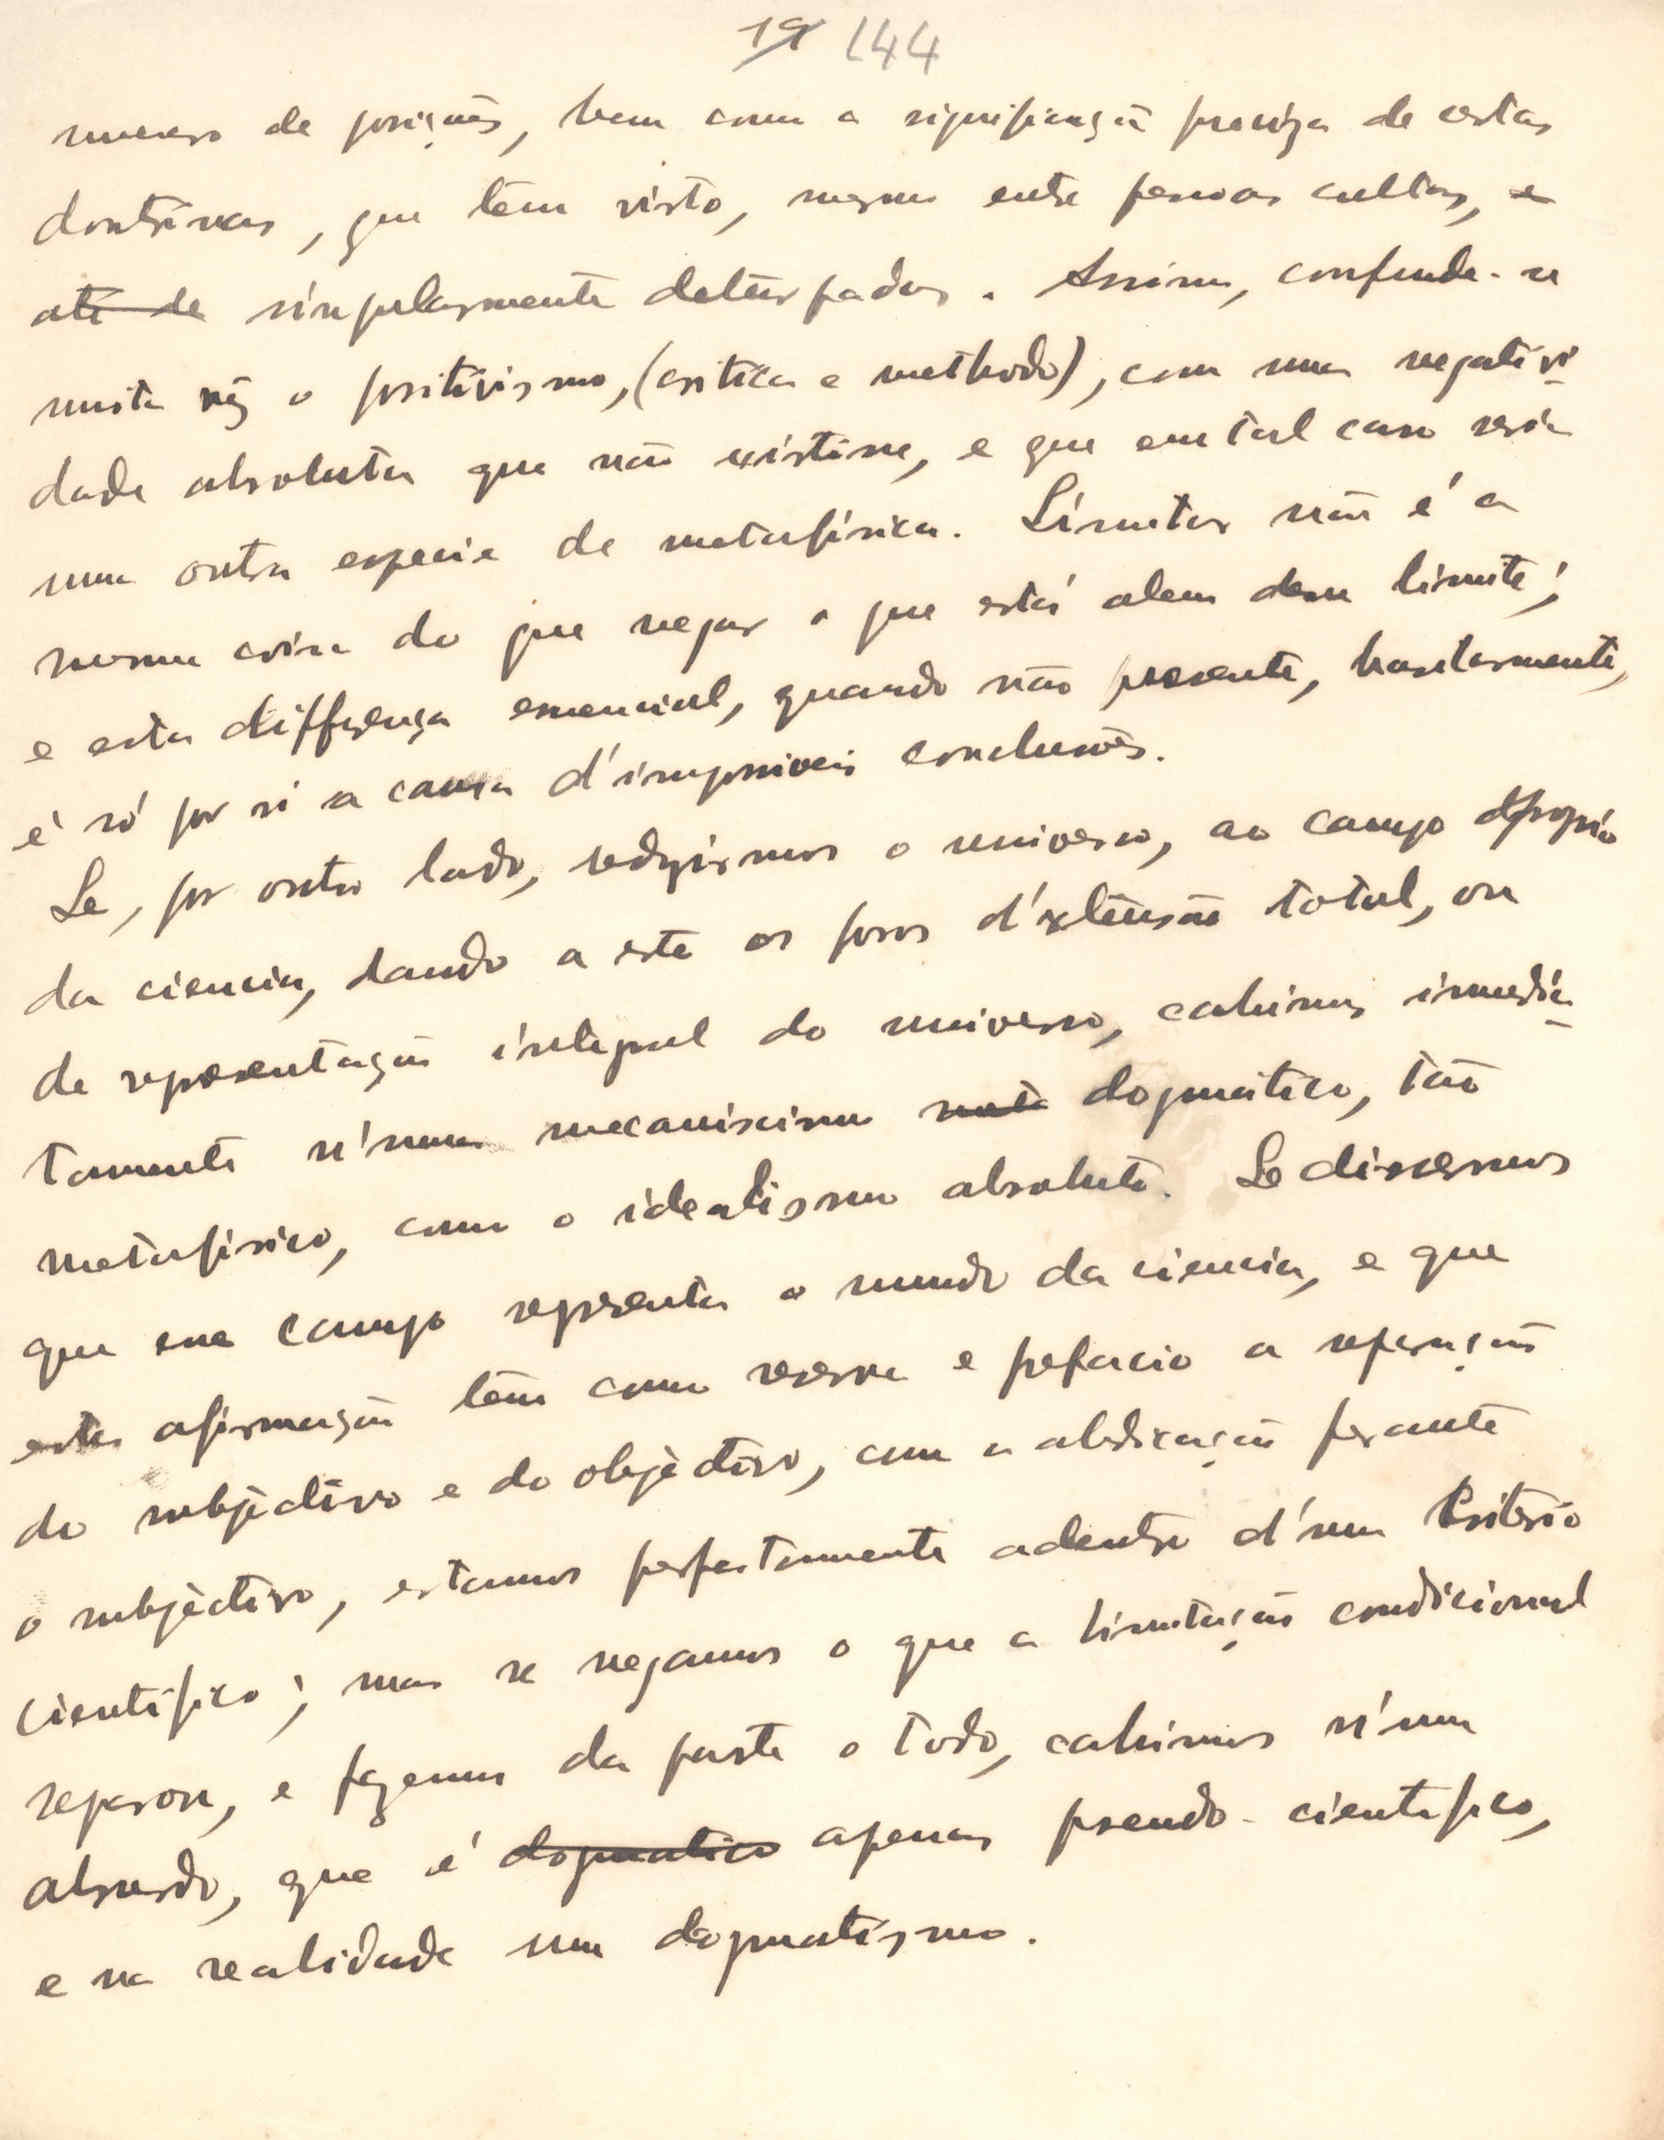 19 144
numero de posições, bem como a significação preciza de certas
doutrinas, que tem visto, mesmo entre pessoas cultas, e
até de singularmente deturpadas. Assim, confunde-se
muita vêz o positivismo, (critica e methodo), com uma negativi-
dade absoluta que não existisse, e que em tal caso seria
uma outra especie de metafísica. Limitar não é a
mesma coisa do que negar o que está alem desse limite;
e esta differença essencial, quando não presente, bastarmente,
é só por si a causa d'impossiveis conclusões.
Se, por outro lado, reduzirmos o universo, ao campo proprio
da ciencia, dando a este os foros d'extensão total, ou
de representação integral do universo, cahimos imedia-
tamente n'um mecanicismo dogmático, tão
metafisico, como o idealismo absoluto. Se dissermos
que esse campo representa o mundo da ciencia, e que
esta afirmação tem como reserva e prefacio a separação
do subjètivo e do objèctivo, com a abdicação perante
o subjèctivo, estamos perfeitamente adentro d'um criterio
cientifico; mas se negamos o que a limitação condicional
separou, e fazemos da parte o todo, cahimos n'um
absurdo, que é dogmatico apenas pseudo-cientifico,
e na realidade um dogmatismo.